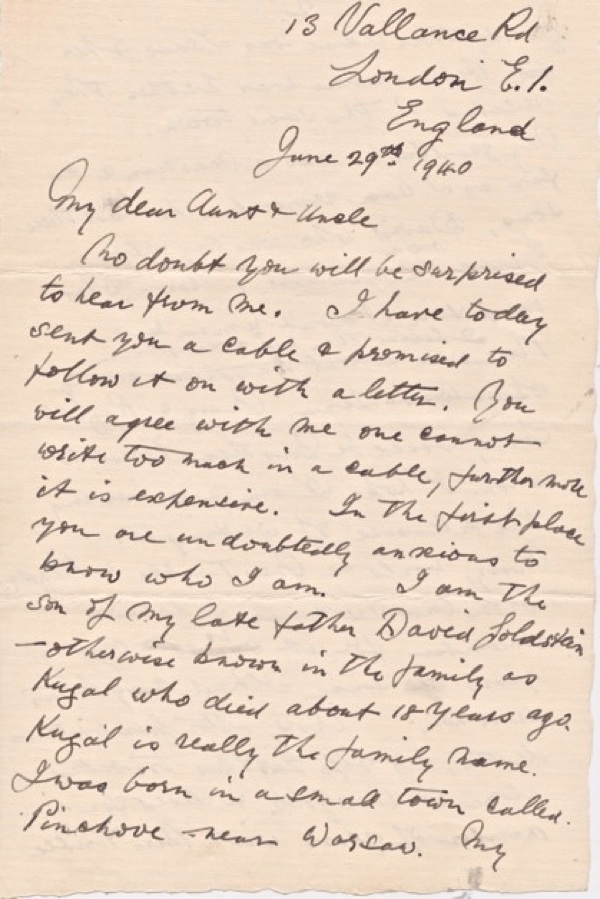 13 Vallance Rd
London E.1.
England
June 29th 1940
My dear Aunt & Uncle
No doubt you will be surprised
to hear from me. I have today
sent you a cable & promised to
follow it on with a letter. You
will agree with me one cannot
write too much in a cable, further more
it is expensive. In the first place
you are undoubtedly anxious to
know who I am. I am the
son of my late father David Goldstein
- otherwise known in the family as
Kugal who died about 18 years ago.
Kugal is really the family name.
I was born in a small town called.
Pinchove near Warsaw. My